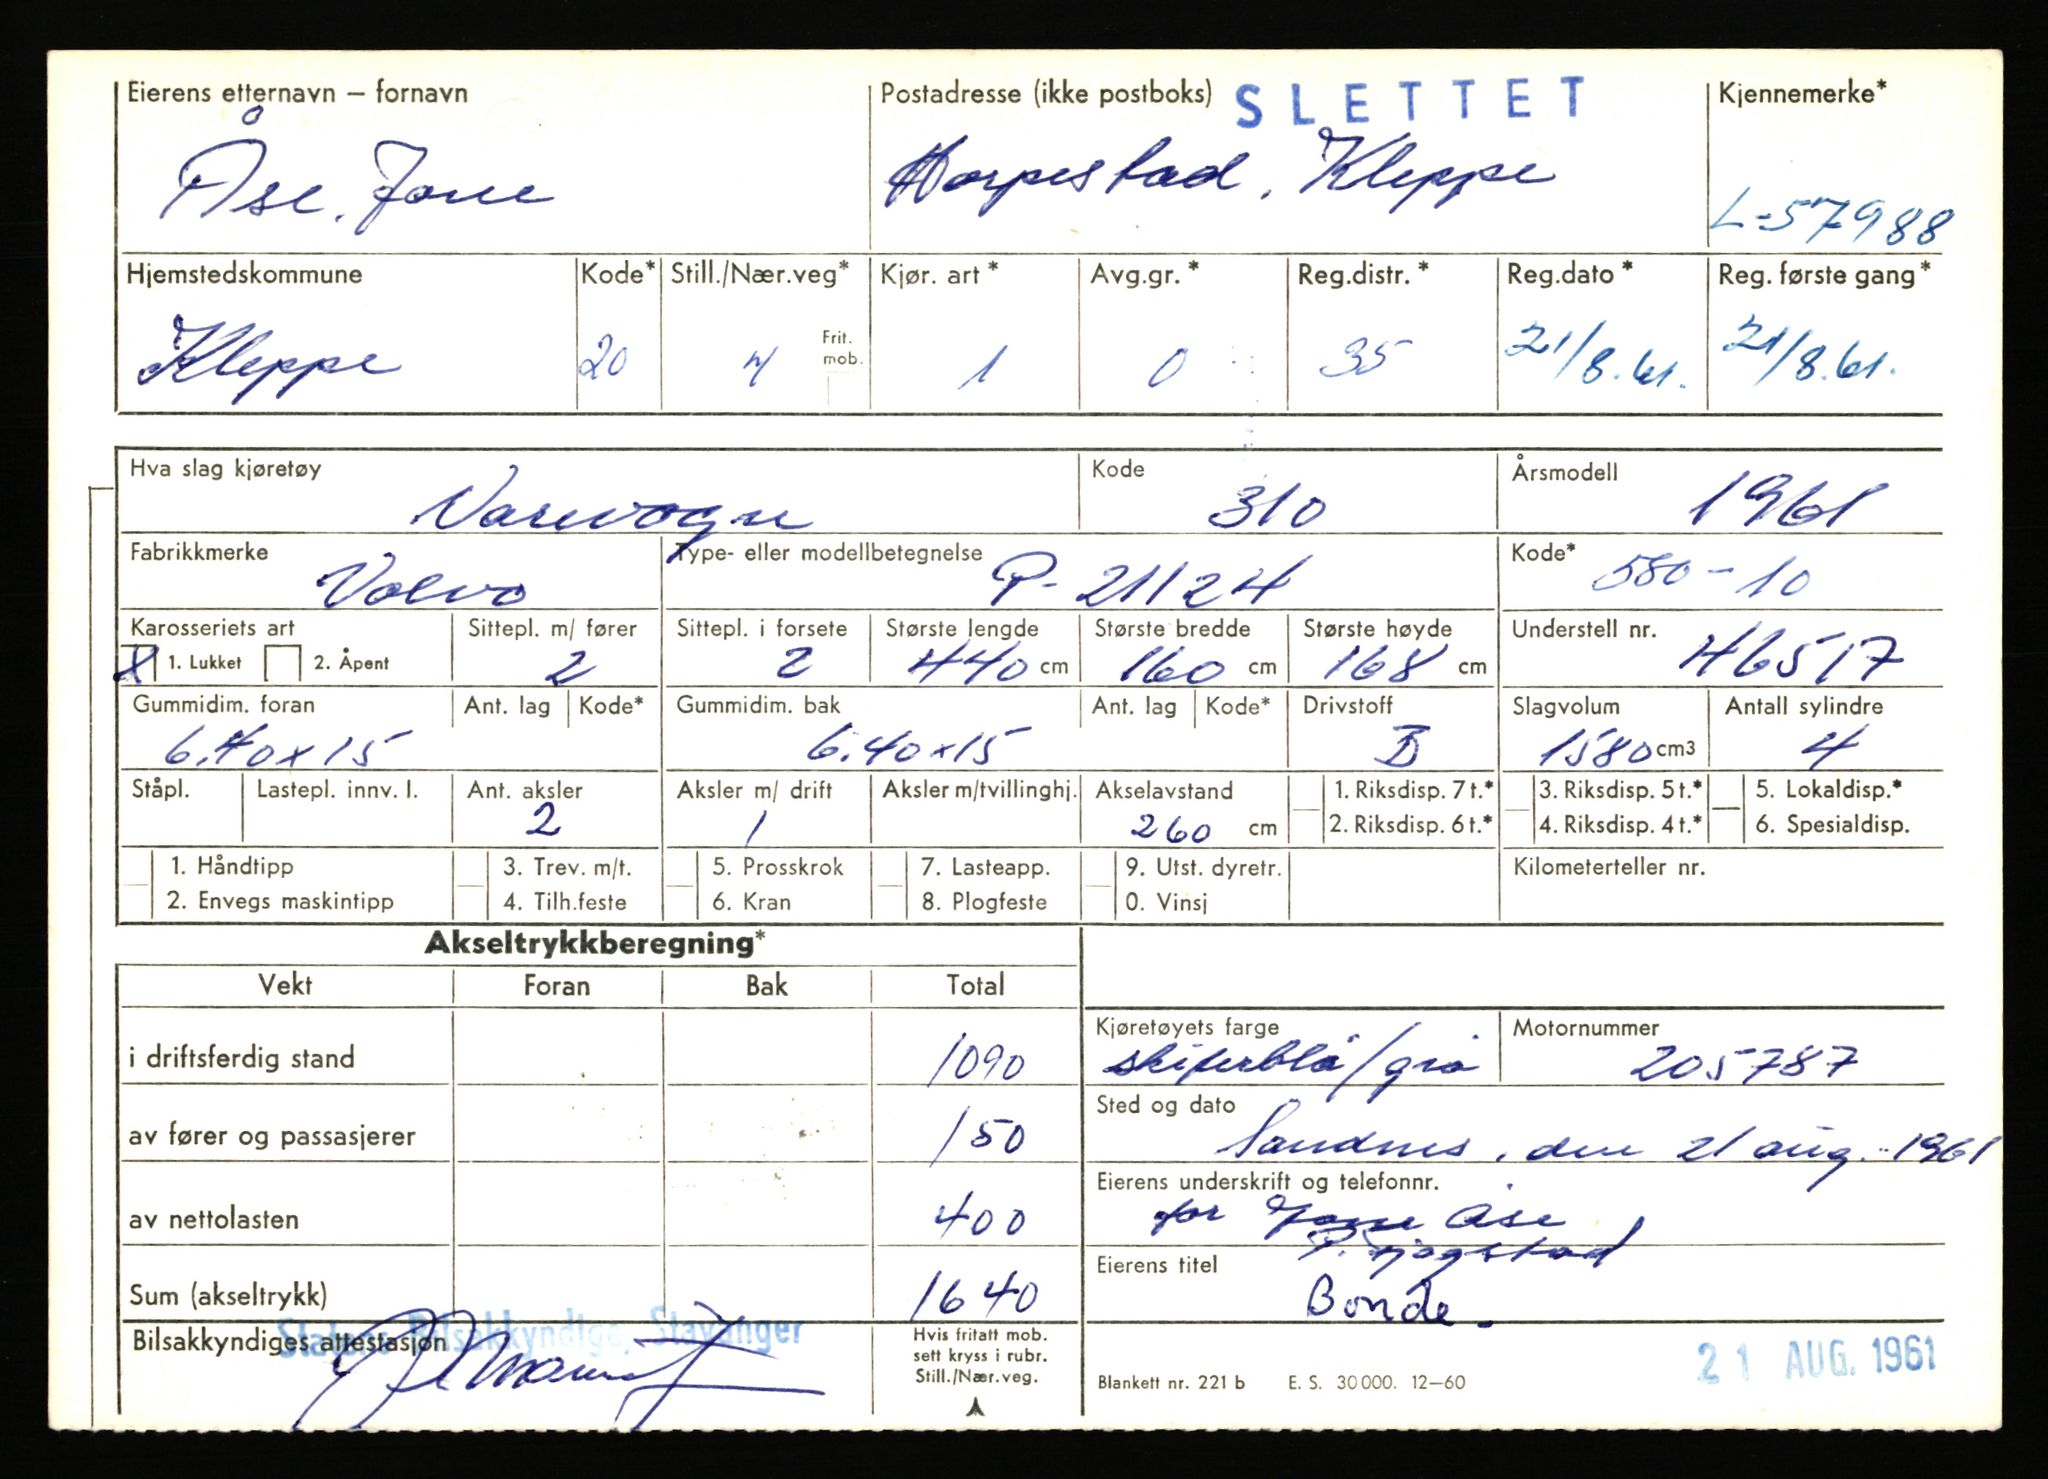 Eierens etternavn – fornavn Postadresse (ikke postboks) SLETTET Kjennemerke*
Åse, Jone Horpestad, Kleppe L-57988
Hjemstedskommune Kode* Still./Nær.veg* Kjør. art* Avg.gr.* Reg.distr.* Reg.dato* Reg. første gang*
Kleppe 20 Frit. mob. 1 0 35 21/8.61. 21/8.61.
Hva slag kjøretøy Kode Årsmodell
Varevogn 310 1961
Fabrikkmerke Type- eller modellbetegnelse Kode*
Volvo P-21124 580-10
Karosseriets art Sittepl. m/ fører Sittepl. i forsete Største lengde Største bredde Største høyde Understell nr.
X 1. Lukket 2. Åpent 2 2 440 cm 160 cm 168 cm 46517
Gummidim. foran Ant. lag Kode* Gummidim. bak Ant. lag Kode* Drivstoff Slagvolum Antall sylindre
6.40x15 6.40x15 B 1580 cm3 4
Ståpl. Lastepl. innv. l. Ant. aksler Aksler m/ drift Aksler m/tvillinghj. Akselavstand 1. Riksdisp. 7 t.* 3. Riksdisp. 5 t.* 5. Lokaldisp.*
2 1 260 cm 2. Riksdisp. 6 t.* 4. Riksdisp. 4 t.* 6. Spesialdisp.
1. Håndtipp 3. Trev. m/t. 5. Prosskrok 7. Lasteapp. 9. Utst. dyretr. Kilometerteller nr.
2. Envegs maskintipp 4. Tilh.feste 6. Kran 8. Plogfeste 0. Vinsj
Akseltrykkberegning*
Vekt Foran Bak Total
Kjøretøyets farge Motornummer
i driftsferdig stand 1090 skiferblå/grå 205787
Sted og dato
av fører og passasjerer 150 Sandnes, den 21 aug. 1961
Eierens underskrift og telefonnr.
av nettolasten 400 for Jone Åse
Eierens titel
Sum (akseltrykk) 1640 Bonde
Statens Bilsakkyndige, Stavanger
Bilsakkyndiges attestasjon Hvis fritatt mob.
sett kryss i rubr.
Still./Nær.veg.
21 AUG. 1961
Blankett nr. 221 b E. S. 30 000. 12–60